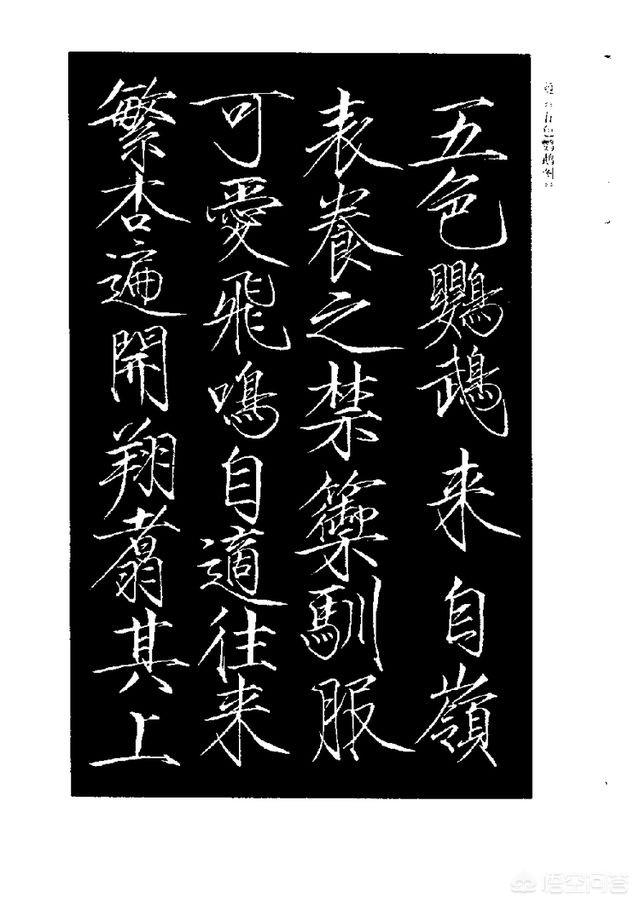 五色鸚鵡来自嶺
表養之禁籞馴服
可愛飛鳴自適往来
繁杏遍開翔翥其上
五色鹦鹉图
悟空问答